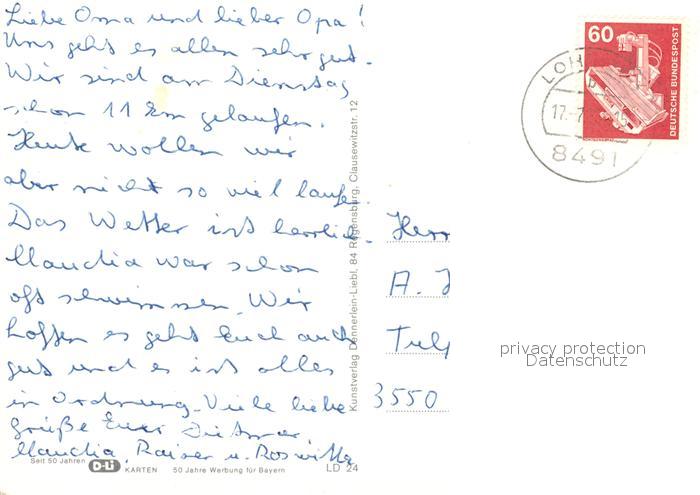 Liebe Oma und lieber Opa!
Uns geht es allen sehr gut.
Wir sind am Dienstag
schon 11 Km gelaufen.
Heute wollen wir
aber nicht so viel laufen.
Das Wetter ist herrlich.
Claudia war schon
oft schwimmen. Wir
hoffen es geht Euch auch
gut und es ist alles
in Ordnung. Viele liebe
Grüße Euer Dietmar,
Claudia, Rainer u. Roswitha
Seit 50 Jahren D-Li KARTEN 50 Jahre Werbung für Bayern LD 24
Kunstverlag Dennerlein-Liebl, 84 Regensburg, Clausewitzstr. 12
60
DEUTSCHE BUNDESPOST
LOH
b
17.-7
8491
Herr
A. J
Tulp
3550
privacy protection
Datenschutz